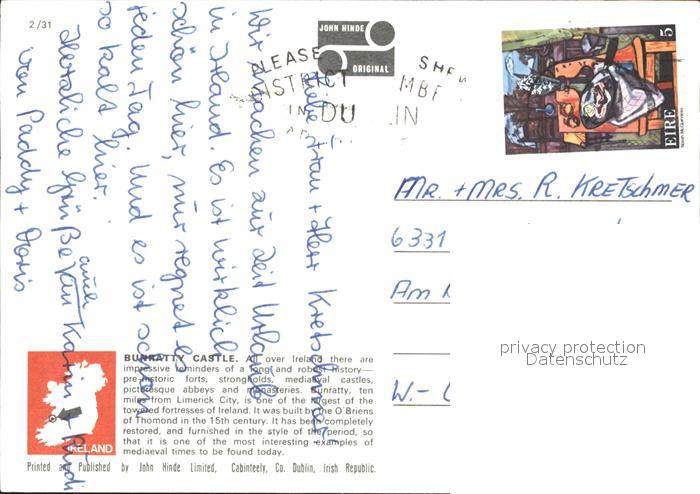 2/31
JOHN HINDE
ORIGINAL
PLEASE
DISTRICT
IN DUBLIN
EIRE 5
Liebe Frau + Herr Kretschmer!
Wir machen zur Zeit Urlaub
in Irland. Es ist wirklich
schön hier, nur regnet es
jeden Tag. Und es ist schon
so kalt hier.
Herzliche Grüße auch an Karin + Rudi
von Paddy + Doris
MR. + MRS. R. KRETSCHMER
6331
Am
W.-
privacy protection
Datenschutz
BUNRATTY CASTLE. All over Ireland there are
impressive reminders of a long and robust history—
pre-historic forts, strongholds, mediaeval castles,
picturesque abbeys and monasteries. Bunratty, ten
miles from Limerick City, is one of the largest of the
towered fortresses of Ireland. It was built by the O'Briens
of Thomond in the 15th century. It has been completely
restored, and furnished in the style of the period, so
that it is one of the most interesting examples of
mediaeval times to be found today.
IRELAND
Printed and Published by John Hinde Limited, Cabinteely, Co. Dublin, Irish Republic.